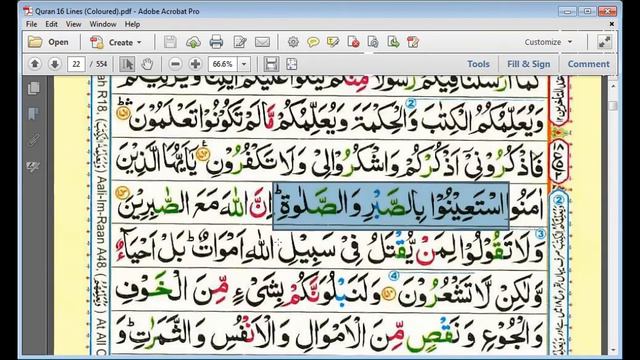 Quran 16 Lines (Coloured).pdf - Adobe Acrobat Pro
File Edit View Window Help
Open Create Customize
22 / 554 66.6% Tools Fill & Sign Comment
كَمَآ اَرْسَلْنَا فِيْكُمْ رَسُوْلًا مِّنْكُمْ يَتْلُوْا عَلَيْكُمْ اٰيٰتِنَا وَيُزَكِّيْكُمْ
وَيُعَلِّمُكُمُ الْكِتٰبَ وَالْحِكْمَةَ وَيُعَلِّمُكُمْ مَّا لَمْ تَكُوْنُوْا تَعْلَمُوْنَ
فَاذْكُرُوْنِيْٓ اَذْكُرْكُمْ وَاشْكُرُوْا لِيْ وَلَا تَكْفُرُوْنِ يٰٓاَيُّهَا الَّذِيْنَ
اٰمَنُوا اسْتَعِيْنُوْا بِالصَّبْرِ وَالصَّلٰوةِ ؕ اِنَّ اللّٰهَ مَعَ الصّٰبِرِيْنَ
وَلَا تَقُوْلُوْا لِمَنْ يُّقْتَلُ فِيْ سَبِيْلِ اللّٰهِ اَمْوَاتٌ ؕ بَلْ اَحْيَآءٌ
وَّلٰكِنْ لَّا تَشْعُرُوْنَ وَلَنَبْلُوَنَّكُمْ بِشَيْءٍ مِّنَ الْخَوْفِ
وَالْجُوْعِ وَنَقْصٍ مِّنَ الْاَمْوَالِ وَالْاَنْفُسِ وَالثَّمَرٰتِ ؕ وَ
ah R18. Aali-Im-Raan A48. At All C